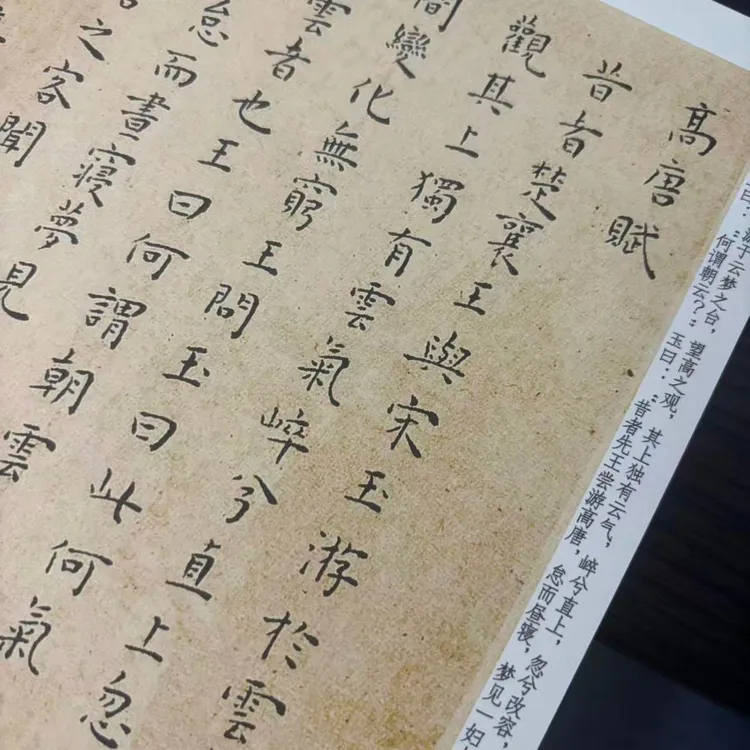 高唐賦
昔者楚襄王與宋玉游於雲
觀其上獨有雲氣崒兮直上忽
間變化無窮王問玉曰此何氣
雲者也王曰何謂朝雲
怠而晝寢夢見
之客聞
游于云梦之台，望高之观，其上独有云气，崒兮直上，忽兮改容，
曰：“何谓朝云？”玉曰：“昔者先王尝游高唐，怠而昼寝，梦见一妇